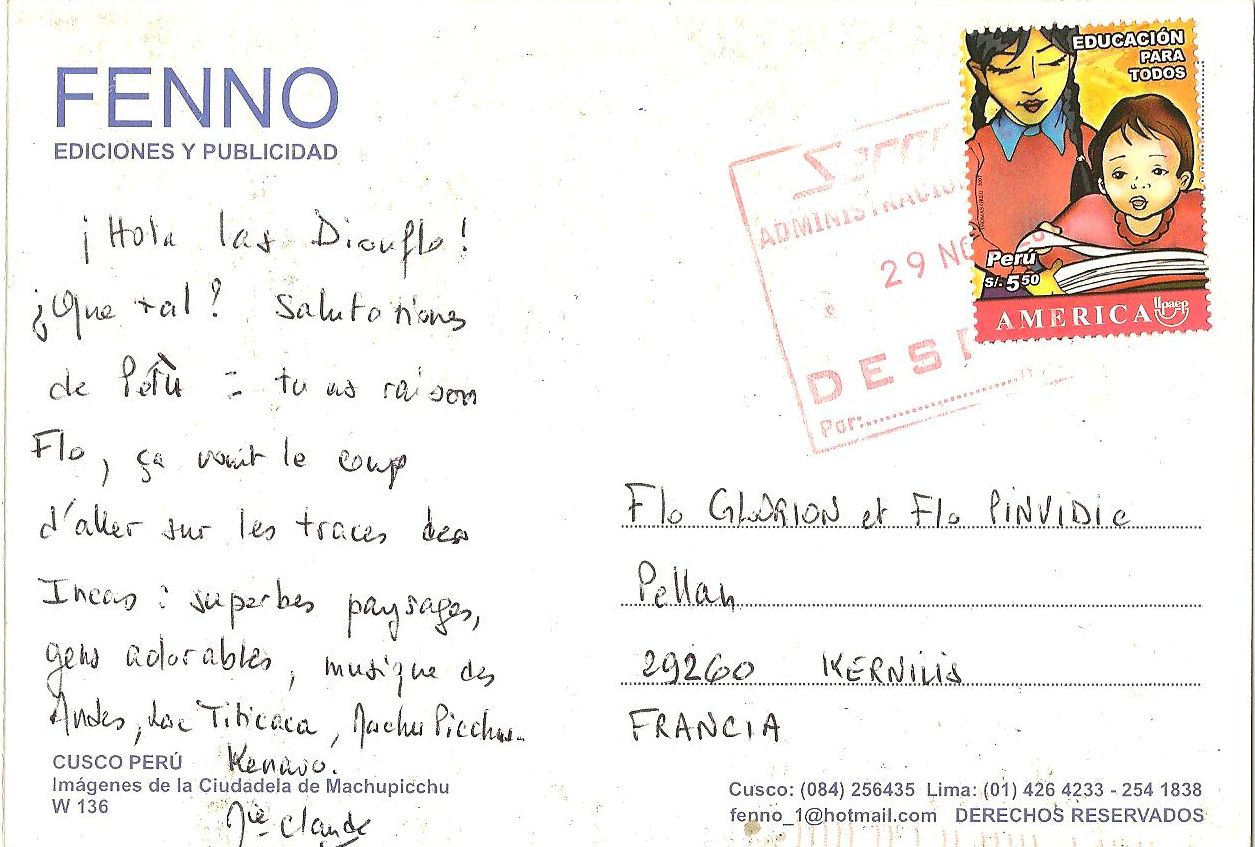 FENNO
EDICIONES Y PUBLICIDAD
¡Hola las Diouflo!
¿Que tal? Salutationes
de Pérù : tu as raison
Flo, ça vaut le coup
d'aller sur les traces des
Incas : superbes paysages,
gens adorables, musique des
Andes, Lac Titicaca, Machu Picchu...
Kenavo.
Mie Claude
CUSCO PERÚ
Imágenes de la Ciudadela de Machupicchu
W 136
EDUCACIÓN
PARA
TODOS
Perú
S/. 5.50
AMERICA Upaep
ADMINISTRACIÓ
29 NO
DES
Por:
Flo GLORION et Flo PINVIDIC
Pellan
29260 KERNILIS
FRANCIA
Cusco: (084) 256435 Lima: (01) 426 4233 - 254 1838
fenno_1@hotmail.com DERECHOS RESERVADOS